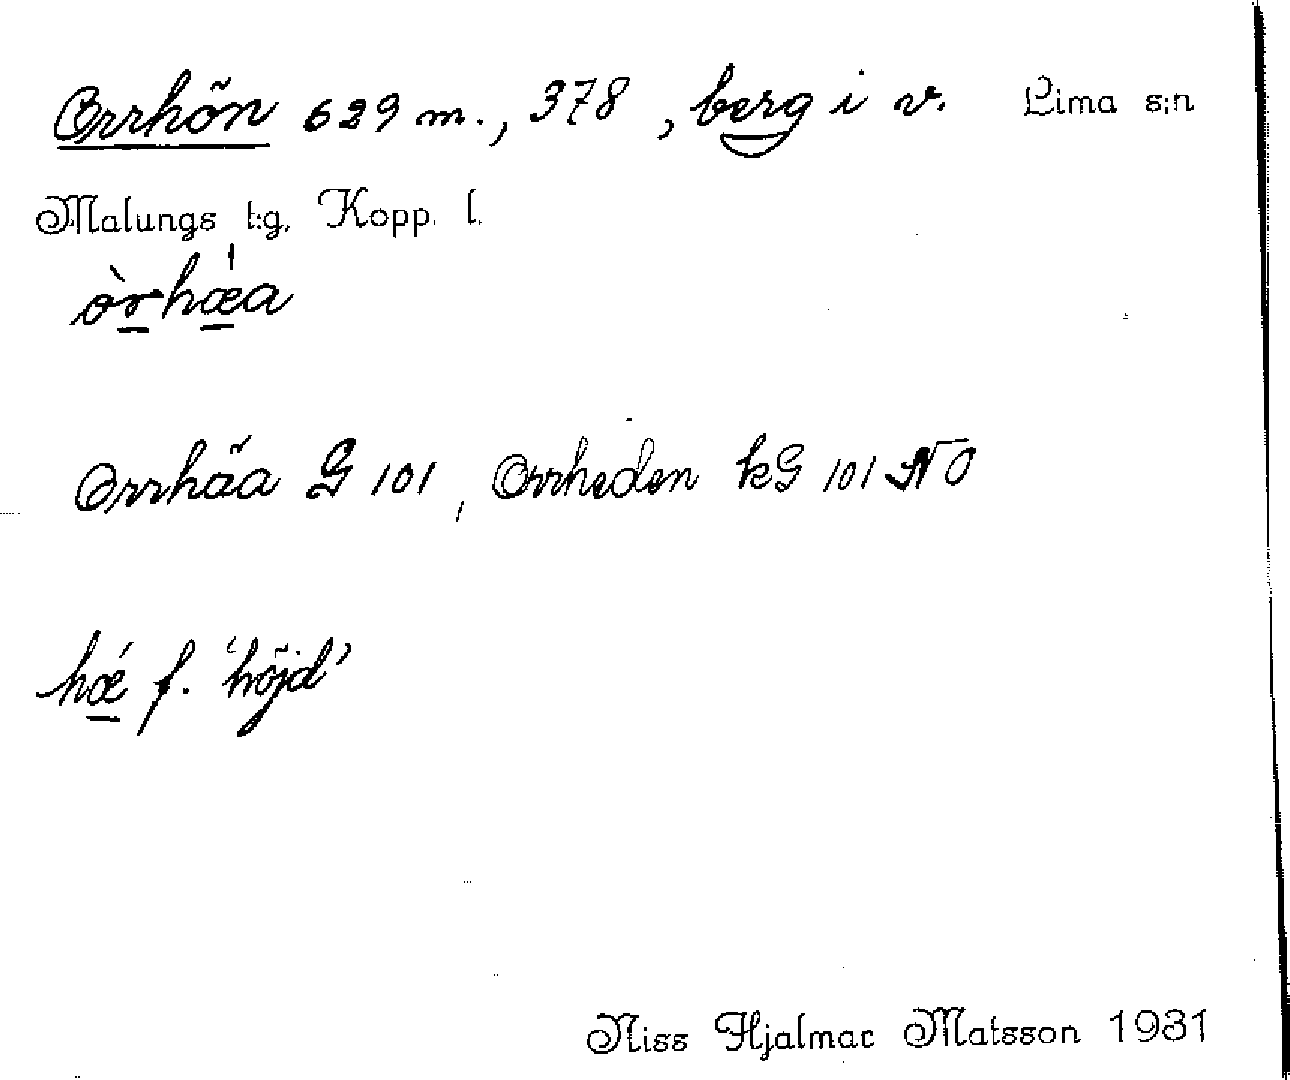 Orrhön 629 m., 378, berg i v. Lima s:n
Malungs t:g. Kopp. l.
òrhǽa
Orrhöa G 101, Orrheden kG 101 NO
hǽ f. 'höjd'
Niss Hjalmar Matsson 1931